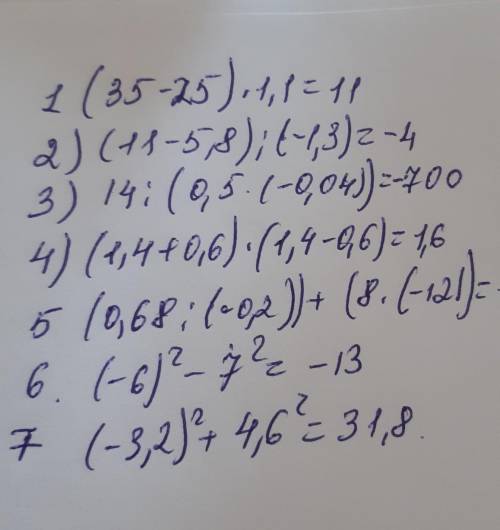 1 (35-25)·1,1=11
2) (11-5,8):(-1,3)=-4
3) 14:(0,5·(-0,04))=-700
4) (1,4+0,6)·(1,4-0,6)=1,6
5 (0,68:(-0,2))+(8·(-121)=-
6. (-6)²-7²=-13
7 (-3,2)²+4,6²=31,8.